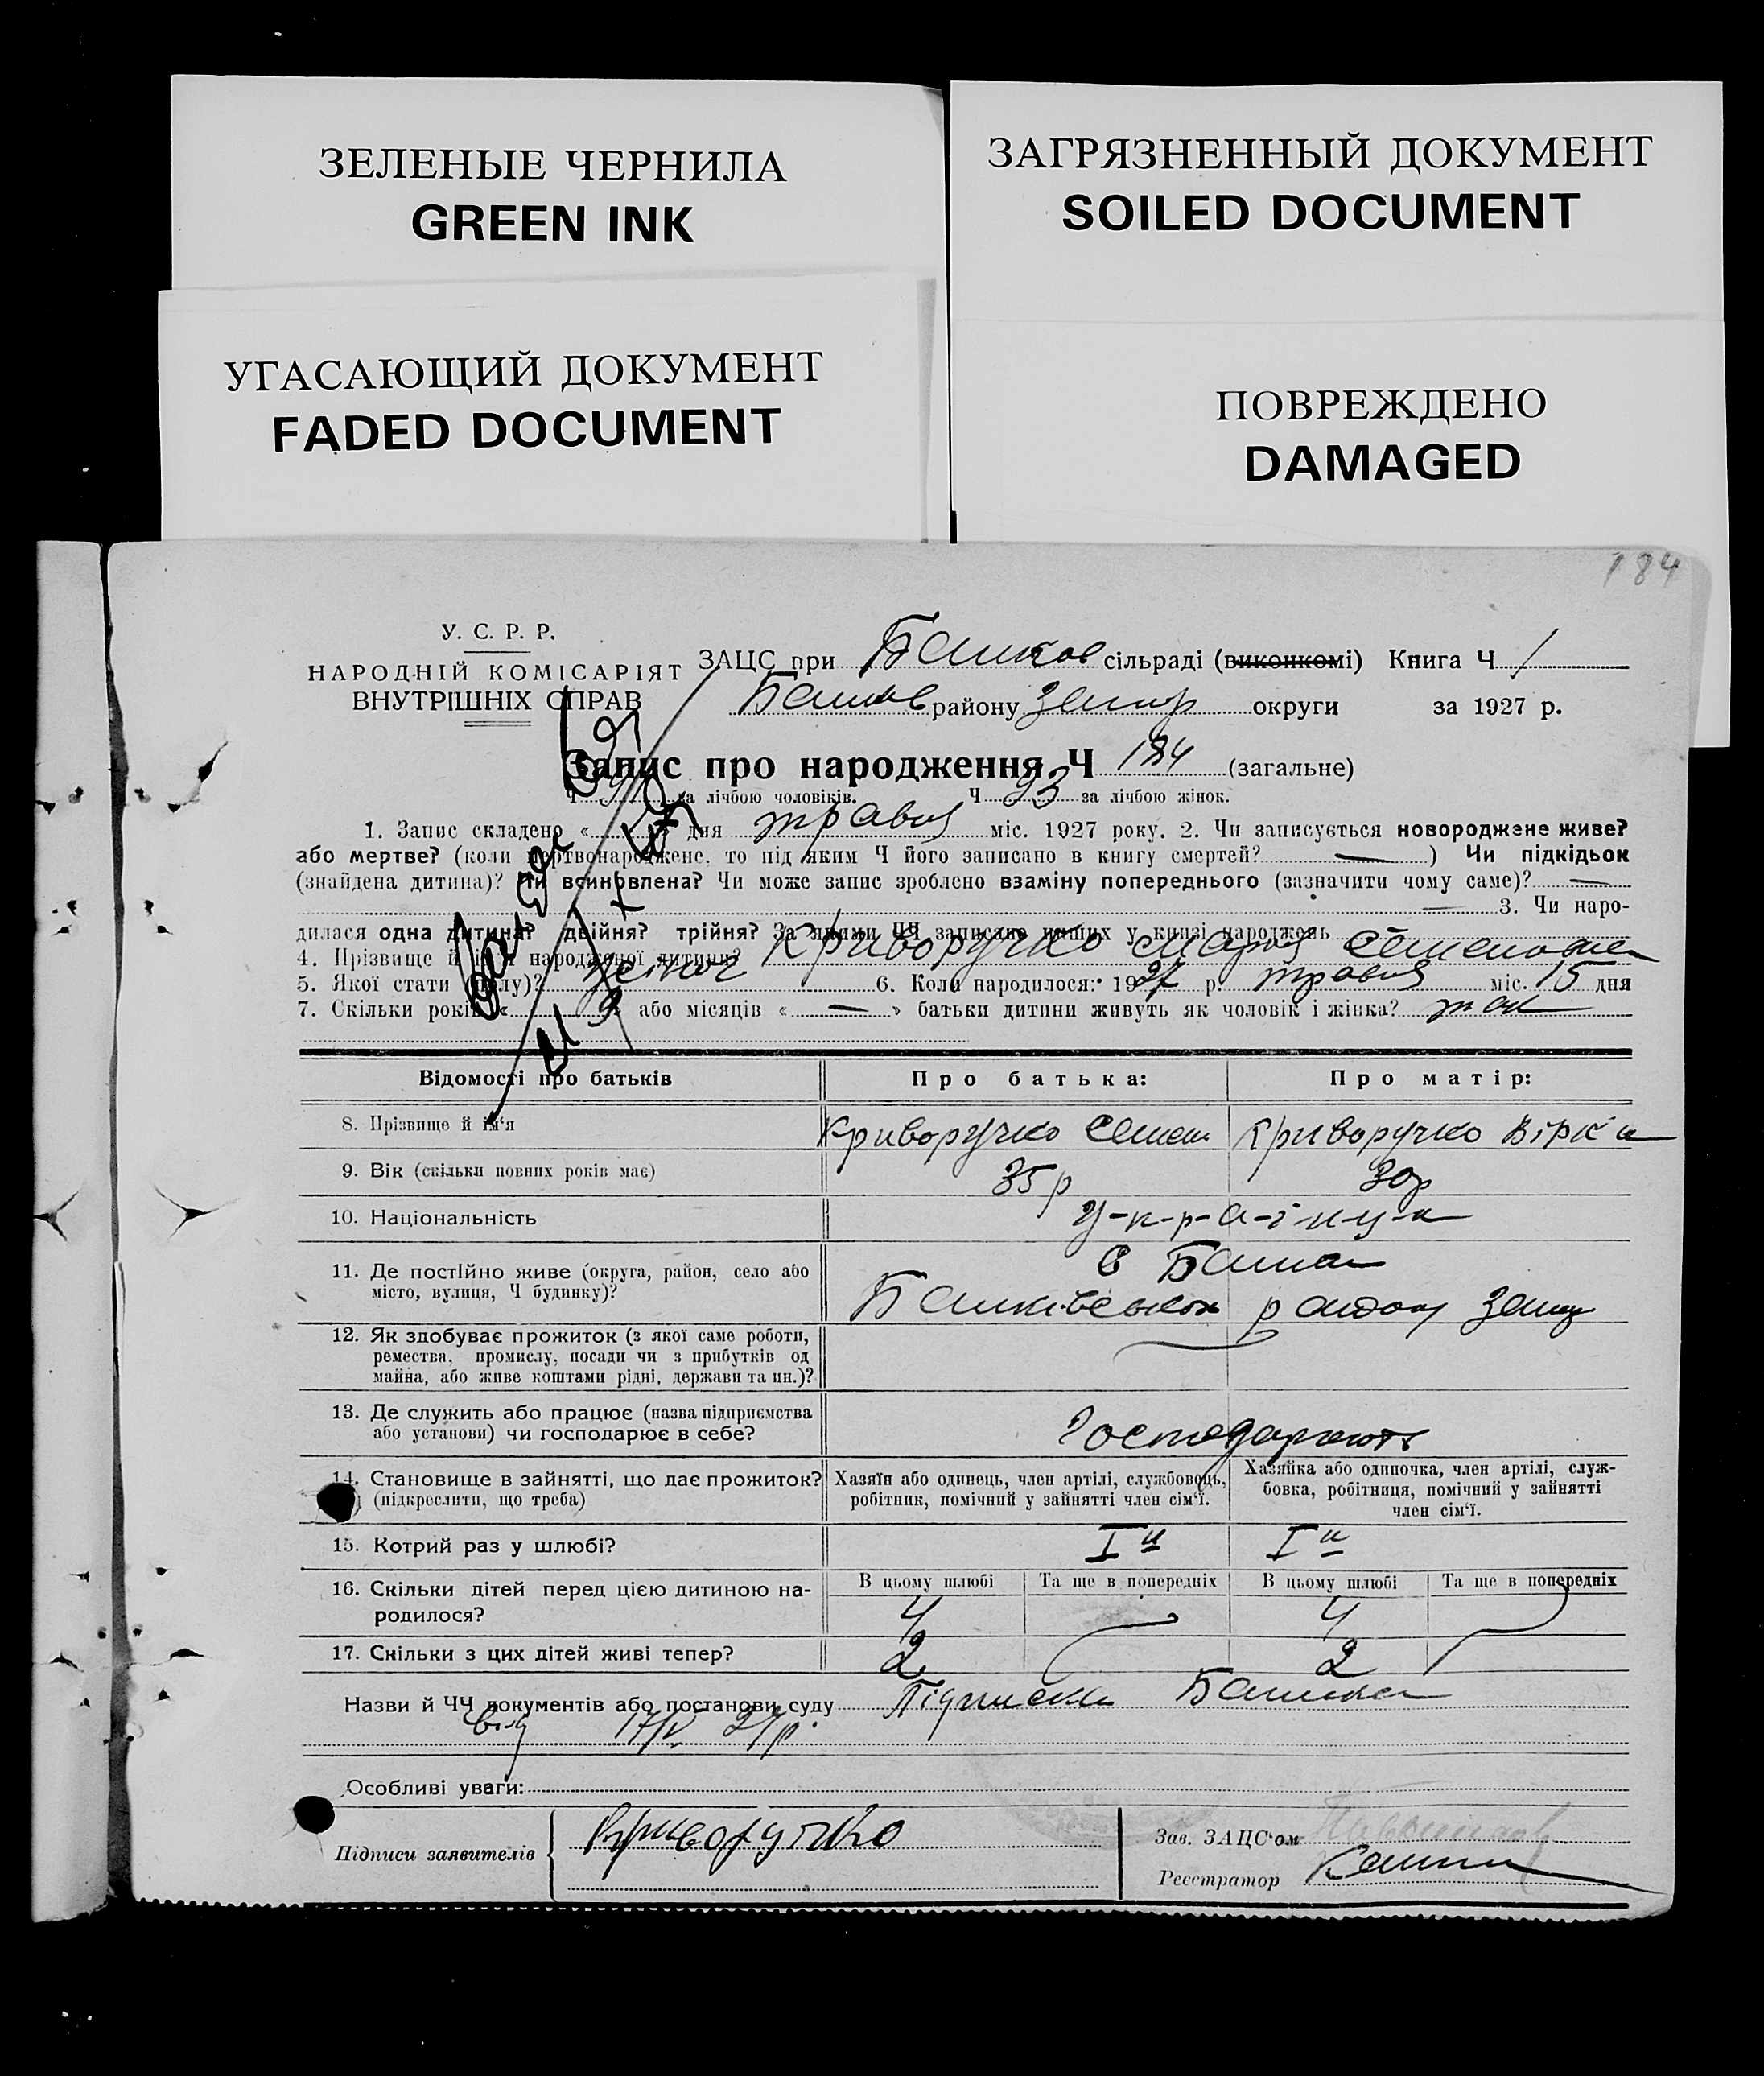 ЗЕЛЕНЫЕ ЧЕРНИЛА
GREEN INK
ЗАГРЯЗНЕННЫЙ ДОКУМЕНТ
SOILED DOCUMENT
УГАСАЮЩИЙ ДОКУМЕНТ
FADED DOCUMENT
ПОВРЕЖДЕНО
DAMAGED
184
У. С. Р. Р.
НАРОДНІЙ КОМІСАРІЯТ
ВНУТРІШНІХ СПРАВ
ЗАЦС при сільраді (виконкомі) Книга Ч 1
району округи за 1927 р.
Запис про народження Ч 184 (загальне)
Ч за лічбою чоловіків. Ч 93 за лічбою жінок.
1. Запис складено « » дня травня міс. 1927 року. 2. Чи записується новороджене живе?
або мертве? (коли мертвонароджене, то під яким Ч його записано в книгу смертей? — ) Чи підкідьок
(знайдена дитина)? Чи всиновлена? Чи може запис зроблено взаміну попереднього (зазначити чому саме)? —
— 3. Чи наро-
дилася одна дитина? двійня? трійня? За якими ЧЧ записано инших у книзі народжень
4. Прізвище й ім'я народженої дитини? Криворучко Мария Семеновна
5. Якої стати (полу)? жіноч 6. Коли народилося: 1927 р. травня міс. 15 дня
7. Скільки років « 9 » або місяців « — » батьки дитини живуть як чоловік і жінка? так
Відомості про батьків Про батька: Про матір:
8. Прізвище й ім'я Криворучко Семен Криворучко Вірка
9. Вік (скільки повних років має) 35 р 30 р
10. Національність у-к-р-а-ї-н-ц-и
11. Де постійно живе (округа, район, село або
місто, вулиця, Ч будинку)?
12. Як здобуває прожиток (з якої саме роботи,
ремества, промислу, посади чи з прибутків од
майна, або живе коштами рідні, держави та ин.)?
13. Де служить або працює (назва підприємства
або установи) чи господарює в себе? Господарюють
14. Становище в зайнятті, що дає прожиток? Хазяїн або одинець, член артілі, службовець, Хазяйка або одиночка, член артілі, служ-
(підкреслити, що треба) робітник, помічний у зайнятті член сім'ї. бовка, робітниця, помічний у зайнятті
член сім'ї.
15. Котрий раз у шлюбі? I й I й
16. Скільки дітей перед цією дитиною на- В цьому шлюбі Та ще в попередніх В цьому шлюбі Та ще в попередніх
родилося? 4 — 4 —
17. Скільки з цих дітей живі тепер? 2 2
Назви й ЧЧ документів або постанови суду Підписка
від 17/V 27 р.
Особливі уваги:
Підписи заявителів Криворучко Зав. ЗАЦС'ом
Реєстратор